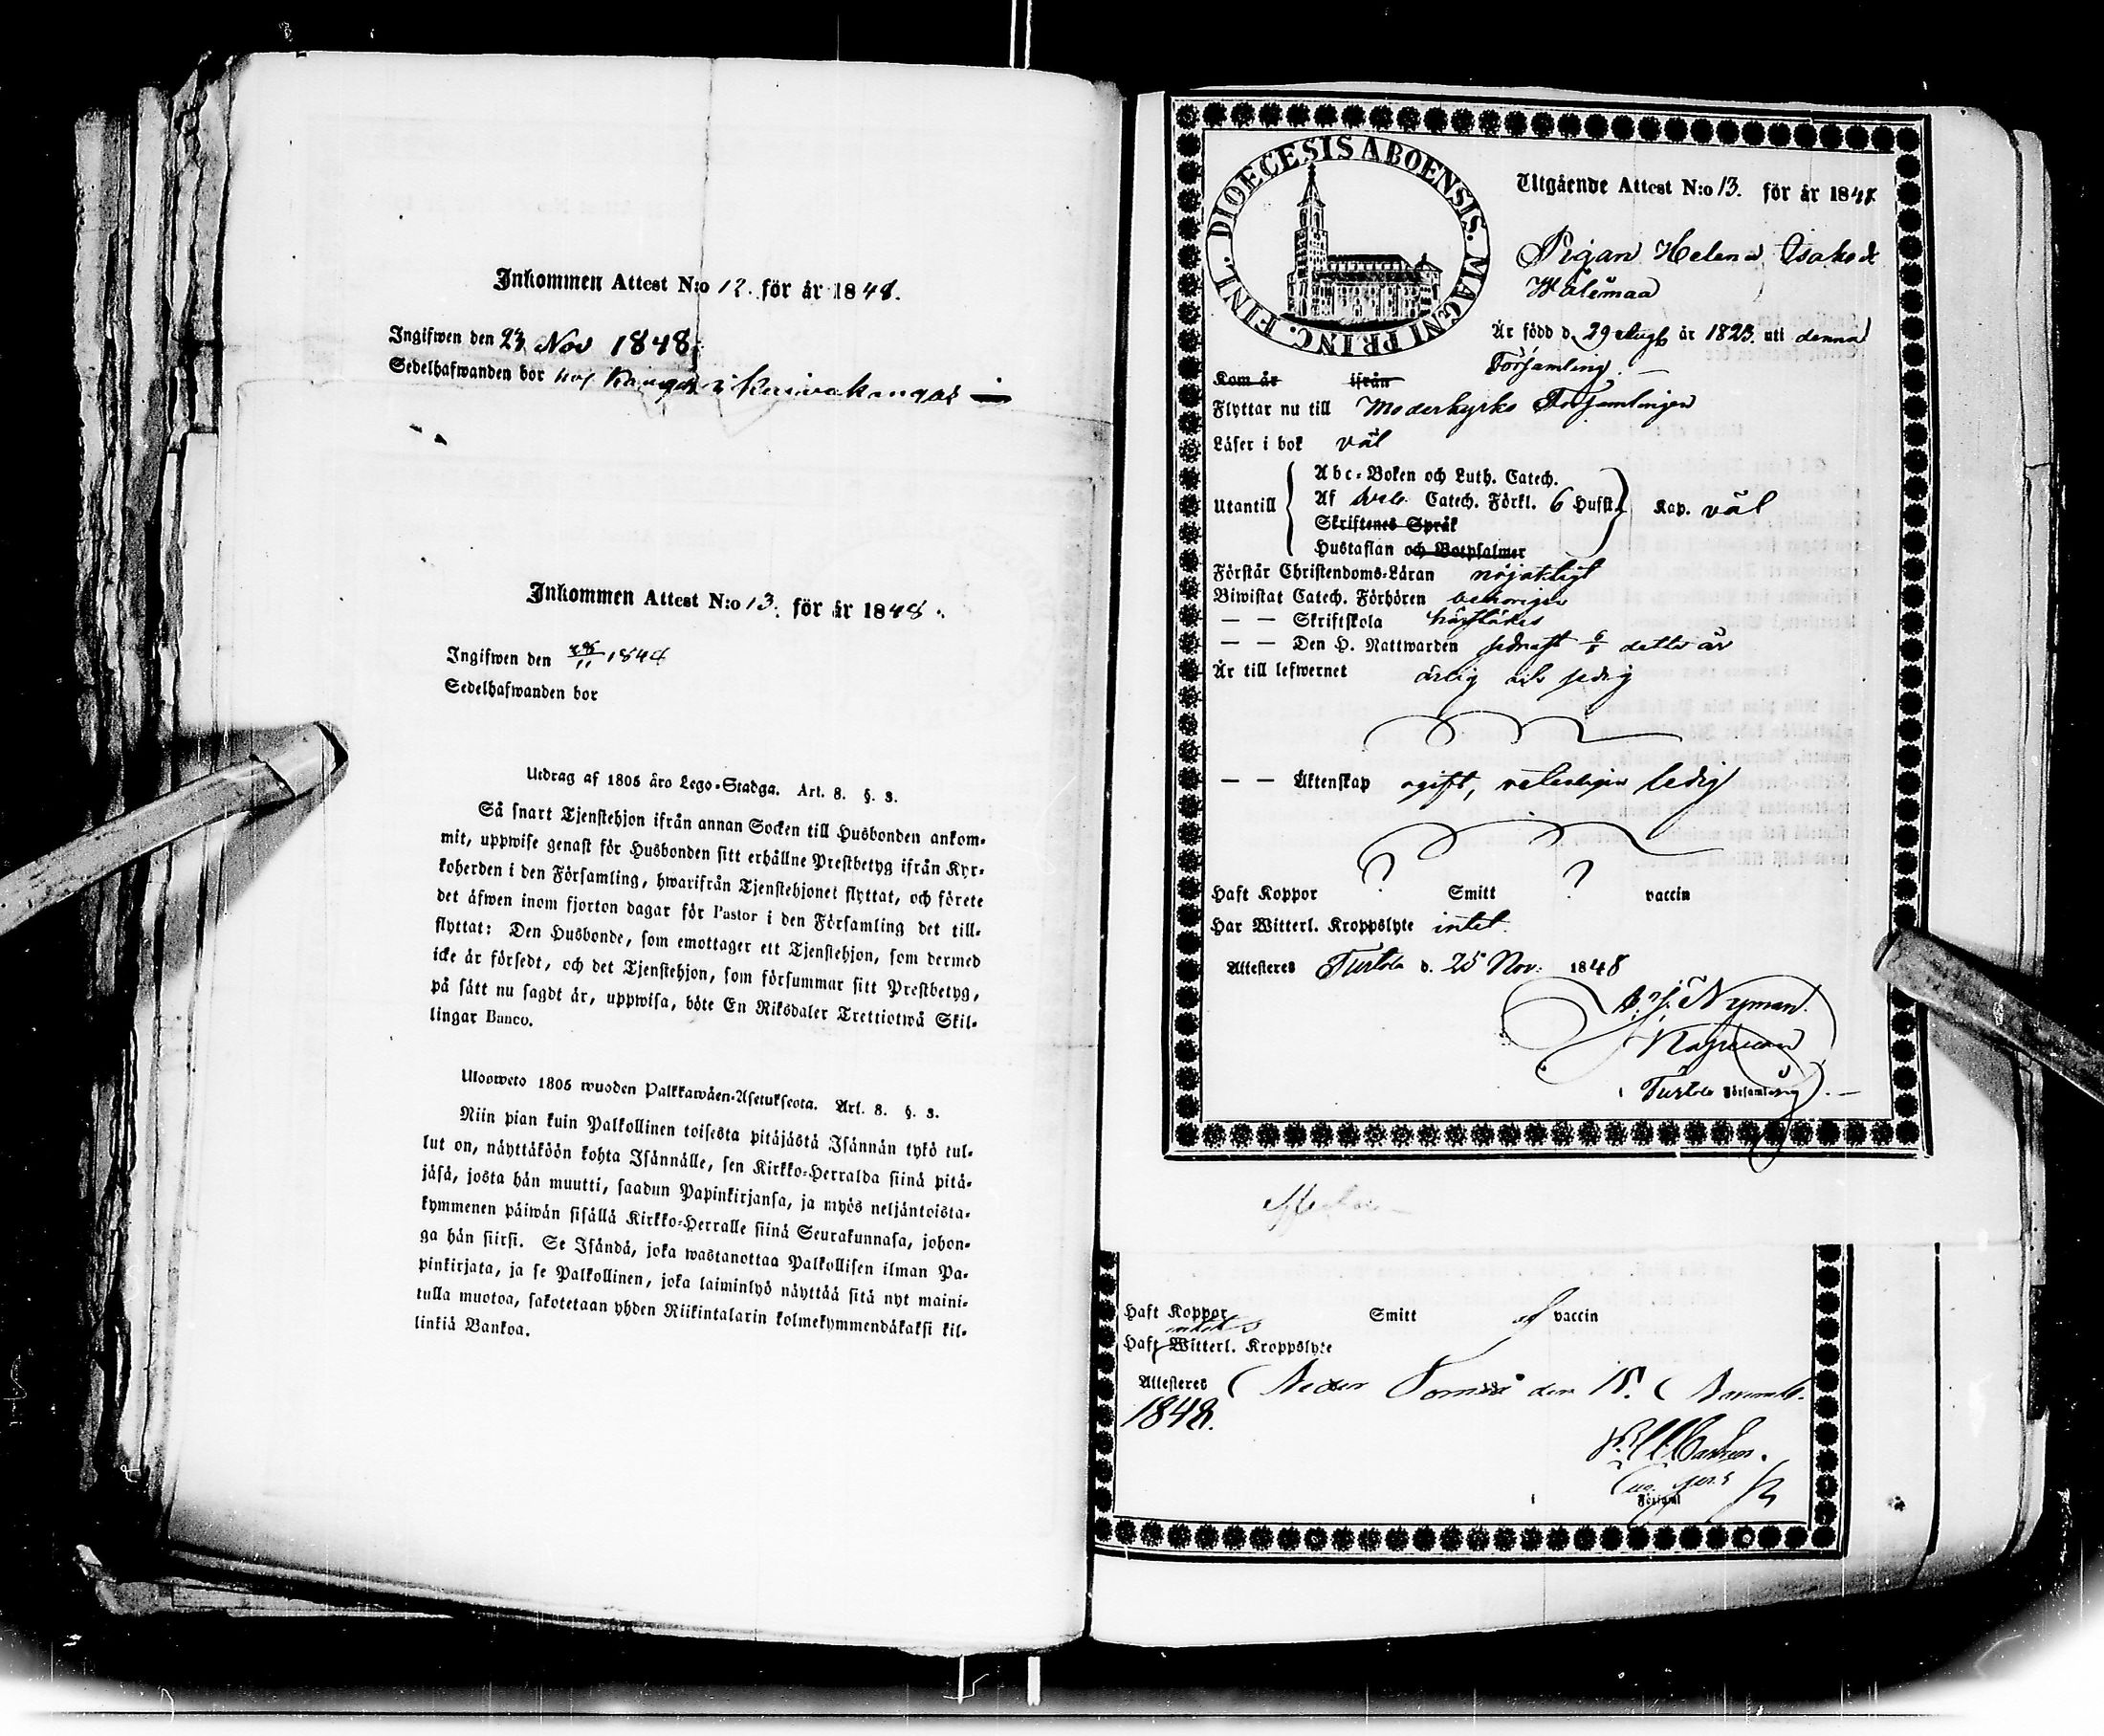 Inkommen Attest N:o 12. för år 1848.
Ingifwen den 23 Nov 1848
Sedelhafwanden bor hos Kangas i Kuivakangas
Inkommen Attest N:o 13. för år 1848.
Ingifwen den 28/11 1848
Sedelhafwanden bor
Utdrag af 1805 års Lego-Stadga. Art. 8. §. 3.
Så snart Tjenstehjon ifrån annan Socken till Husbonden ankom-
mit, uppwise genast för Husbonden sitt erhållne Prestbetyg ifrån Kyr-
koherden i den Församling, hwarifrån Tjenstehjonet flyttat, och förete
det äfwen inom fjorton dagar för Pastor i den Församling det till-
flyttat: Den Husbonde, som emottager ett Tjenstehjon, som dermed
icke är försedt, och det Tjenstehjon, som försummar sitt Prestbetyg,
på sätt nu sagdt är, uppwisa, böte En Riksdaler Trettiotwå Skil-
lingar Banco.
Ulosweto 1805 wuoden Palkkawäen-Asetuksesta. Art. 8. §. 3.
Niin pian kuin Palkollinen toisesta pitäjästä Isännän tykö tul-
lut on, näyttäköön kohta Isännälle, sen Kirkko-Herralda siinä pitä-
jäsä, josta hän muutti, saadun Papinkirjansa, ja myös neljäntoista-
kymmenen päiwän sisällä Kirkko-Herralle siinä Seurakunnasa, johon-
ga hän siirsi. Se Isändä, joka wastanottaa Palkollisen ilman Pa-
pinkirjata, ja se Palkollinen, joka laiminlyö näyttää sitä nyt maini-
tulla muotoa, sakotetaan yhden Riikintalarin kolmekymmendäkaksi kil-
linkiä Bankoa.
DIOECESIS ABOENSIS. MAGNI PRINC. FINL.
Utgående Attest N:o 13. för år 1848
Pigan Helena Isaks d:r
Wälimaa
Är född d. 29 Aug år 1823. uti denna
Församling.
Kom år ifrån
Flyttar nu till Moderkyrko Församlingen
Läser i bok väl
Utantill
Abc-Boken och Luth. Catech.
Af Catech. Förkl. 6 Hufst.
Skriftenes Språk
Hustaflan och Botpsalmer
Kap. väl
Förstår Christendoms-Läran nöjaktigt
Biwistat Catech. Förhören behörigen
— — Skriftskola
— — Den H. Nattwarden sednast detta år
Är till lefwernet ärlig och sedig
— — Äktenskap ogift, veterligen ledig
Haft Koppor ? Smitt ? vaccin
Har Witterl. Kroppslyte intet.
Attesteres Turtola d. 25 Nov: 1848
Nyman.
Kapellan
i Turtola Församling.
Haft Koppor Smitt af vaccin
Haft Witterl. Kroppslyte
Attesteres Neder Torneå den 18. Novemb.
1848.
i Församl